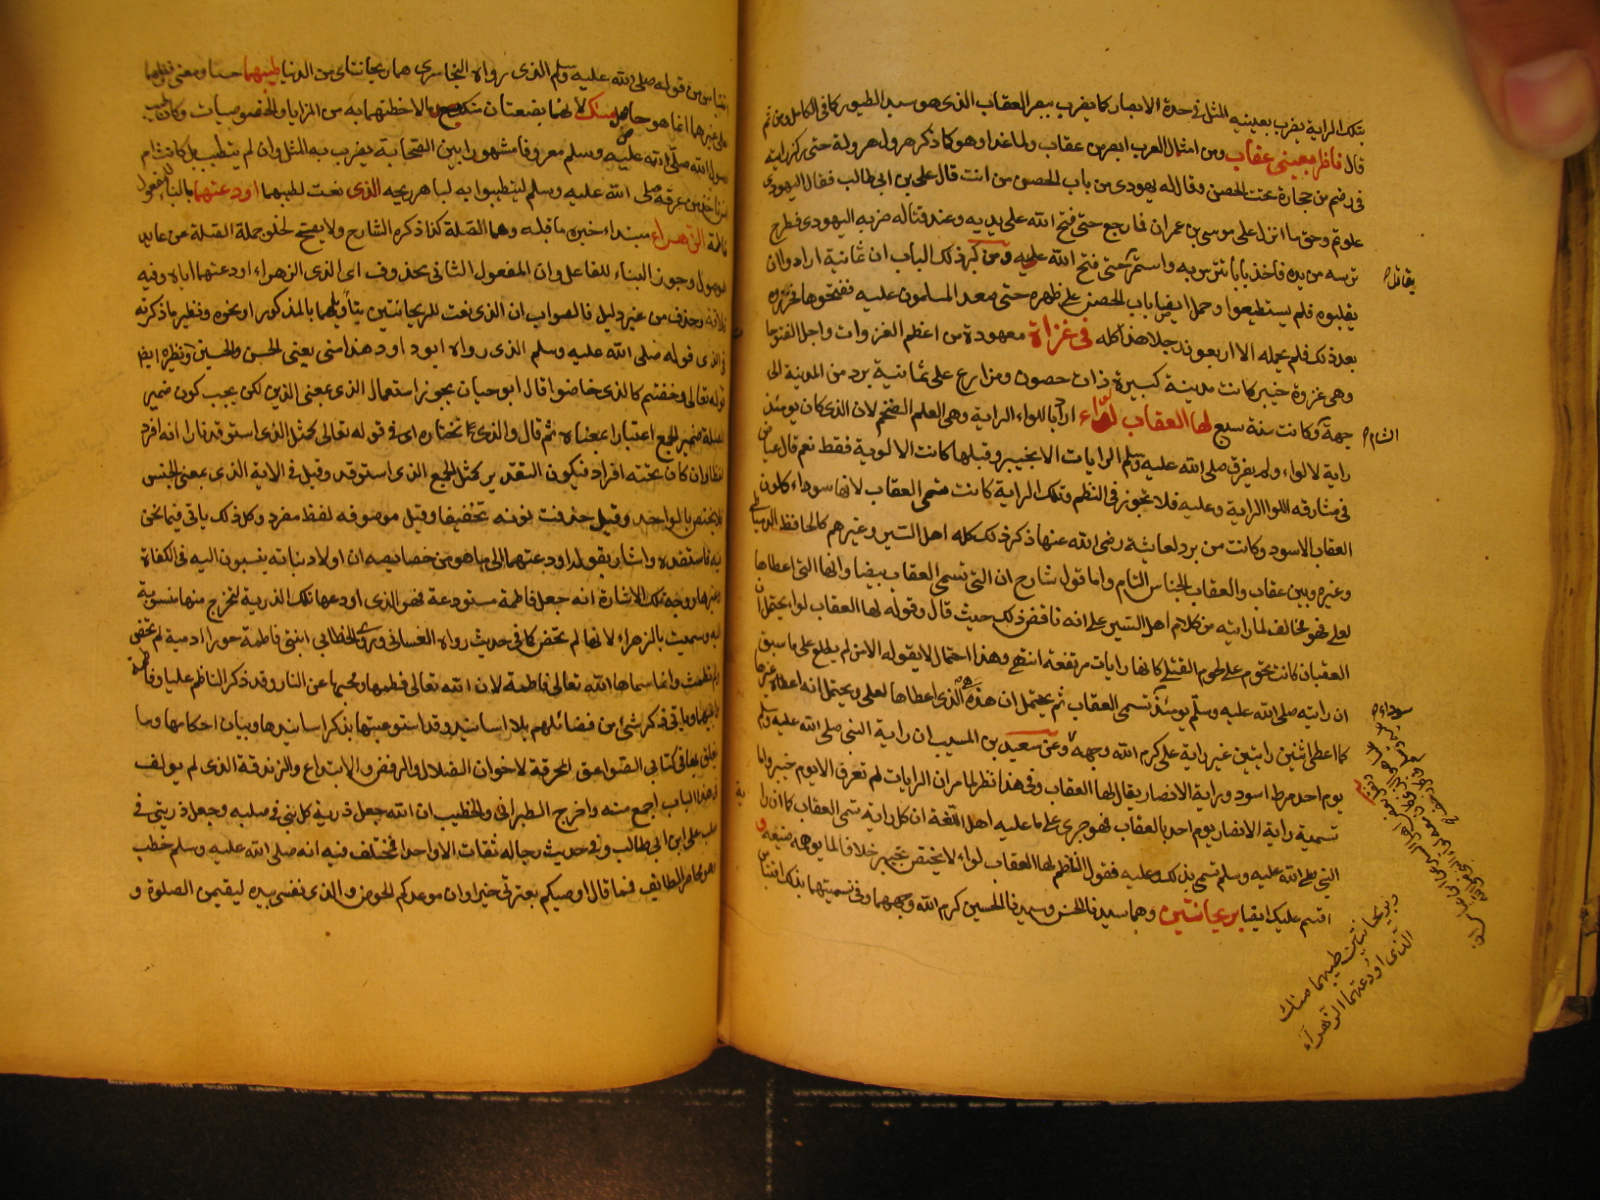 بتلك الراية يضرب بعينيه المثل في حدة الابصار كما يضرب ببصر العقاب الذي هو سيد الطيور كما في الكامل ومن ثم
قال ناظرا بعيني عقاب ومن امثال العرب ابصر من عقاب ولما غدا وهو كما ذكر هرول هرولة حتى ركز رايته
في رضم من حجارة تحت الحصن وقال له يهودى من باب الحصن من انت قال علي بن ابي طالب فقال اليهودى
علوتم وحق ما انزل على موسى بن عمران فما رجع حتى فتح الله على يديه وعند قتاله ضربه اليهودى فطرح
ترسه من يده فاخذ بابا تترس به واستمر حتى فتح الله عليه ومن كبر ذلك الباب ان ثمانية ارادوا ان
يقلبوه فلم يستطيعوا وحمل ايضا باب الحصن على ظهره حتى صعد المسلمون عليه ففتحوها فجروه
بعد ذلك فلم يحمله الا اربعون رجلا هذا كله في غزاة معهودة من اعظم الغزوات واجل الفتوحا
وهي غزوة خيبر كانت مدينة كبيرة ذات حصون ومزارع على ثمانية برد من المدينة الى
جهة وكانت سنة سبع لها العقاب لواء اراد باللواء الراية وهي العلم الضخم لان الذي كان يومئذ
راية لا لواء ولم يفرق صلى الله عليه وسلم الرايات الا بخيبر وقبلها كانت الالوية فقط نعم قال عياض
في مشارقه اللوا الراية وعليه فلا تجوز في النظم وتلك الراية كانت تسمى العقاب لانها سوداء كلون
العقاب الاسود وكانت من برد لعائشة رضي الله عنها ذكر ذلك كله اهل السير وغيرهم كالحافظ الدمياطي
وغيره وبين عقاب والعقاب الجناس التام واما قول شارح ان التي تسمى العقاب بيضا وانها التي اعطاها
لعلي فهو مخالف لما رايته من كلام اهل السير على انه ناقض ذلك حيث قال وقوله لها العقاب لواء يحتمل ان
العقبان كانت تحوم على لحوم القتلى كانها رايات مرتفعة انتهى وهذا احتمال لا يقوله الا من لم يطلع على ما سبق
ان رايته صلى الله عليه وسلم يومئذ تسمى العقاب ثم يحتمل ان هذه الذي اعطاها لعلي ويحتمل انه اعطاه غيرها
كما اعطى اثنين رايتين غير راية علي كرم الله وجهه وعن سعيد بن المسيب ان راية النبي صلى الله عليه وسلم
يوم احد مرط اسود وراية الانصار يقال لها العقاب وفي هذا نظر لما مر ان الرايات لم تعرف الا يوم خيبر واما
تسمية راية الانصار يوم احد بالعقاب فهو جرى على ما عليه اهل اللغة ان كل راية تسمى العقاب كما ان را
النبي صلى الله عليه وسلم تسمى بذلك وعليه فقول الناظم لها العقاب لواء لا يختص بخيبر خلافا لما يوهمه صنيعه و
اقسم عليك ايضا بريحانتين وهما سيدنا الحسن وسيدنا الحسين كرم الله وجههما وفي تسميتهما بذلك اقتباس
يقاتل
الشام
سوداء
وبريحانتين طيبهما منك
الذي اودعتهما الزهراء
اقتباس من قوله صلى الله عليه وسلم الذي رواه البخاري هما ريحانتاى من الدنيا طيبهما حسا ومعنى
على غيرهما انما هو حاصل منك لانهما بضعتان منك ما لاحظتهما به من المزايا والخصوصيات وكان طيب
رسول الله صلى الله عليه وسلم معروفا مشهورا بين الصحابة يضرب به المثل وان لم يتطيب بل كانت ام
من عرقه صلى الله عليه وسلم ليتطيبوا به لباهر ريحه الذي نعت لطيبهما اودعتهما بالبنا للمفعول
فاطمة الزهراء مبتداء خبره ما قبله وهما القبلة كذا ذكره الشارح ولا يصح لخلو جملة القبلة عن عايد
الموصول وجوز البناء للفاعل وان المفعول الثاني محذوف اى الذي الزهراء اودعتهما اياه وفيه
وحذف من غير دليل فالصواب ان الذي نعت للريحانتين بتاويلهما بالمذكور او نحوه ونظير ما ذكرته
في الذي قوله صلى الله عليه وسلم الذي رواه ابو داود هذا مني يعني الحسن والحسين ونظيره ايضا
قوله تعالى وخضتم كالذي خاضوا قال ابو حيان يجوز استعمال الذي بمعنى الذين لكن يجب كون ضمير
الصلة ضمير الجمع اعتبارا بمعناه ثم قال والذي نختاره اى في قوله تعالى كمثل الذي استوقد نارا انه افرد
لفظا وان كان تحته افراد فيكون التقدير كمثل الجمع الذي استوقد وقيل في الاية الذي بمعنى الجنس
لا يختص بالواحد وقيل حذفت نونه تخفيفا وقيل موصوفه لفظ مفرد وكل ذلك ياتي فيما نحن
فيه فاستفده واشار بقوله اودعتهما الى ما هو من خصائصه ان اولاد بناته ينسبون اليه في الكفاة
وغيرها ووجه تلك الاشارة انه جعل فاطمة مستودعة فهو الذي اودعها تلك الذرية لتخرج منها منسوبة
اليه وسميت بالزهراء لانها لم تحض كما في حديث رواه الغساني وروى الخطابي ابنتي فاطمة حوراء ادمية لم تحض
ولم تطمث وانما سماها الله تعالى فاطمة لان الله تعالى فطمها ومحبيها عن النار وقد ذكر الناظم عليا وفاطمة
وابنيهما وياتي ذكر شئ من فضائلهم بلا اسانيد وقد استوعبتها بذكر اسانيدها وبيان احكامها وما
يتعلق بها في كتابي الصواعق المحرقة لاخوان الضلال والرفض والابتداع والزندقة الذي لم يولف
في هذا الباب اجمع منه واخرج الطبراني والخطيب ان الله جعل ذرية كل نبي في صلبه وجعل ذريتي في
صلب علي ابن ابي طالب وفي حديث رجاله ثقات الا واحدا فمختلف فيه انه صلى الله عليه وسلم خطب
وهو محاصر الطايف فما قال اوصيكم بعترتي خيرا وان موعدكم الحوض والذي نفسي بيده ليقيمن الصلوة و